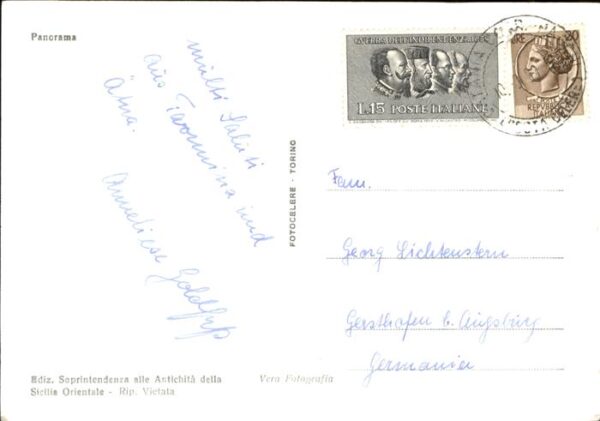 Panorama
multi Saluti
aus Taormina und
Ätna.
Anneliese
GUERRA DELL'INDIPENDENZA 1859
L.15 POSTE ITALIANE
FOTOCELERE - TORINO
Fam.
Georg Lichtenstern
Gersthofen b. Augsburg
Germania
Ediz. Soprintendenza alle Antichità della
Sicilia Orientale - Rip. Vietata
Vera Fotografia